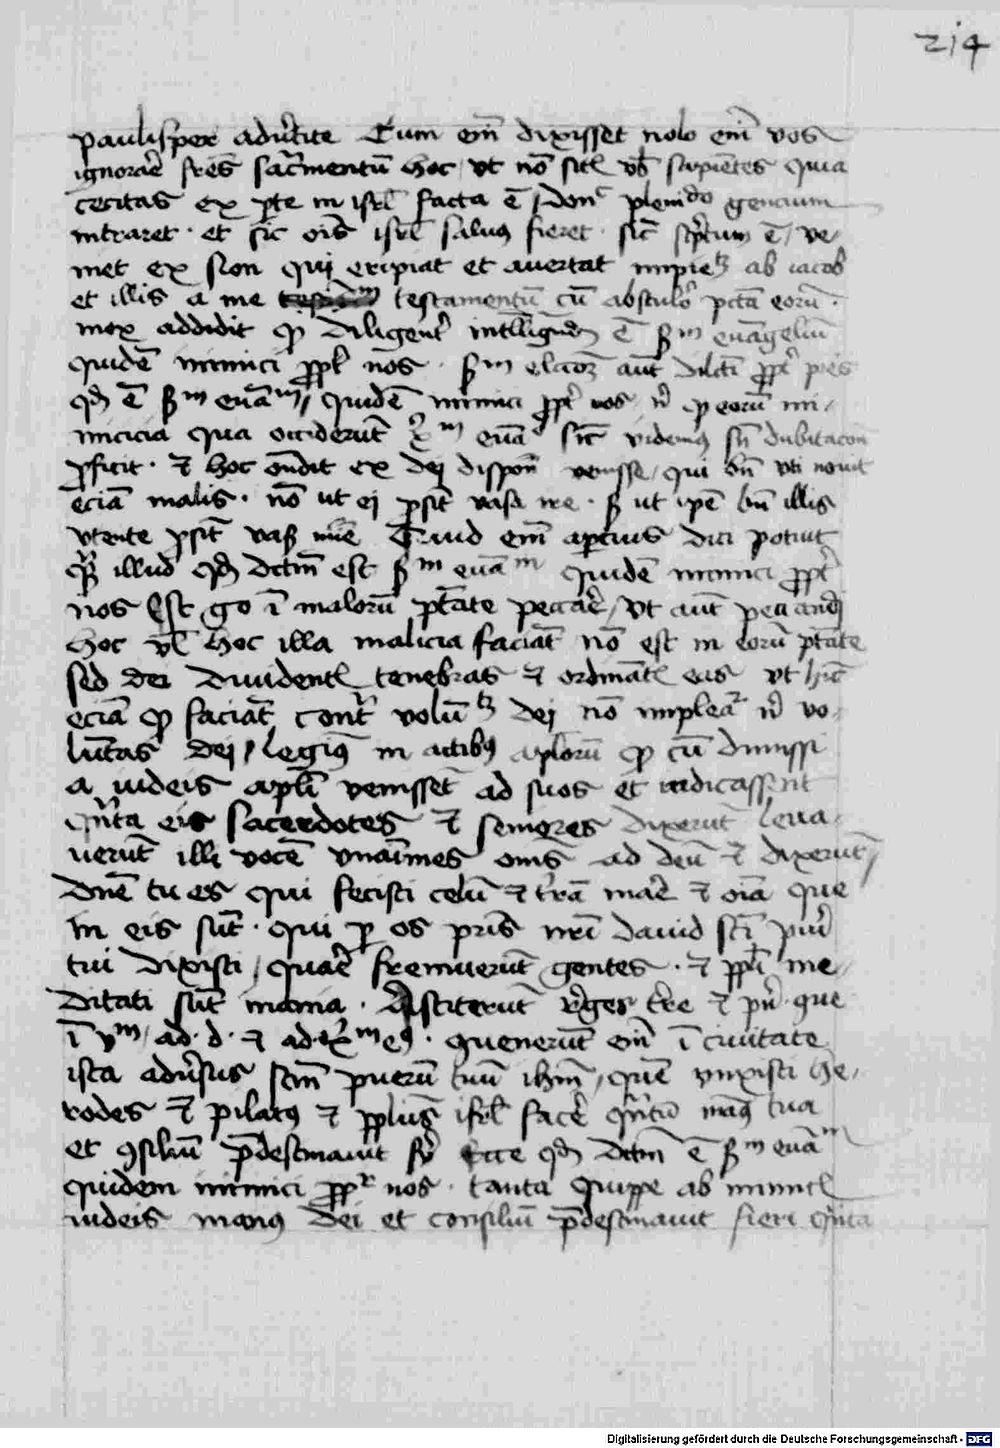 214
paulisper adu̾tite Cum em̅ dixisset nolo em̅ vos
ignorar̅ fres̅ sac̅mentu̅ hoc vt no̅ sitꝭ vob̅ sapie̅tes Quia
cecitas ex p̲te in isrl̅ facta e̅ donc̅ plenitudo gencium
intraret · et sic om̅s isrl̅ saluus fieret · sic̅ sc̅ptum e̅ / ve
niet ex sion qui eripiat et auertat impietatꝫ ab iacob
et illis a me testamentu̅ cu̅ abstulo̾ pctā eoru̅ ·
mox addidit ꝙ diligent̾ intelligend̅ e̅ s̅m euāgeliu̅
quide̅ inimici ꝓpt̾ uos · s̅m elcc̅oꝫ aut̅ dilcti ꝓpt̾ p̅res
qd̅ e̅ s̅m euāᵐ / quide̅ inimici ꝓpt̾ uos eoru̅ ini
micicia qua occideru̅t x̅ᵐ euāᵒ sic̅ videm9 sn̅ dubitacōn
ꝓficit · ⁊ hoc on̅dit ex dei dispoₙ̅ venisse / qui bn̅ vti nouit
ecia̅ malis · no̅ ut ei ꝓsit̅ vasa ire · sꝫ ut ip̅e bn̅ illis
vtente ꝓsit̅ Quid em̅ apertius dici potuit
qᷓ illud qd̅ dictm̅ est s̅m euāᵐ quide̅ inimici ꝓpt̾
uos Est g̊ i̅ maloru̅ p̅tate peccar̅ / vt aut̅ peccando
hoc vl̅ hoc illa malicia faciat̅ no̅ est in eoru̅ p̅tate
sed dei diuidentꝭ tenebras ⁊ ordinātꝭ eas vt hinc̅
ecia̅ ꝙ faciūt contᷓ volūtꝫ dei no̅ impleat̾ nⁱ vo
lūtas dei / legim9 in actib9 aplor̅u ꝙ cu̅ dimissi
a iudeis apl̅i venisset̅ ad suos et indicassent
qᷓnta eis sacerdotes ⁊ seniores dixeru̅t leua
ueru̅t illi voce̅ vnai̅mes om̅s ad deu̅ ⁊ dixeru̅t /
Dn̅e tu es qui fecisti celu̅ ⁊ t̾ra̅ mar̅ ⁊ oi̅a que
in eis su̅t · qui p̲ os pr̅is nr̅i dauid sc̅i pu̾i
tui dixisti / quar̅ fremueru̅t gentes · ⁊ ppl̅i me
ditati su̅t inania · Astiteru̅t reges t̾re ⁊ pn̅ · que
i̅ vᵐ / ad · d · ⁊ ad · x̅ᵐ e9 · ꝯueneru̅t em̅ i̅ ciuitate
ista adu̾sus sc̅m pueru̅ tuu̅ ihm̅ / que̅ vnxisti he
rodes ⁊ pilat9 ⁊ ppl̅us isrl̅ facer̅ qᷓntu̅ man9 tua
et ꝯsiliu̅ p̅destinauit Ecce qd̅ dctm̅ e̅ s̅m euāᵐ
quidem inimici ꝓpt̾ uos · tanta quippe ab inimicꝭ
iudeis man9 dei et consiliu̅ p̅destinauit fieri qᷓnta
Digitalisierung gefördert durch die Deutsche Forschungsgemeinschaft - DFG